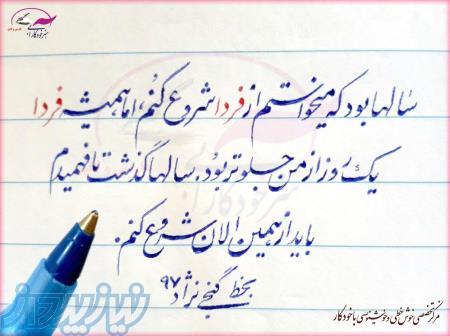 هنر خودکاری
سالها بود که میخواستم از فردا شروع کنم، اما همیشه فردا
یک روز از من جلوتر بود. سالها گذشت تا فهمیدم
باید از همین الان شروع کنم.
بخط گنجی نژاد ۹۷
نیازپرداز
مرکز تخصصی خوش خطی و خوشنویسی با خودکار